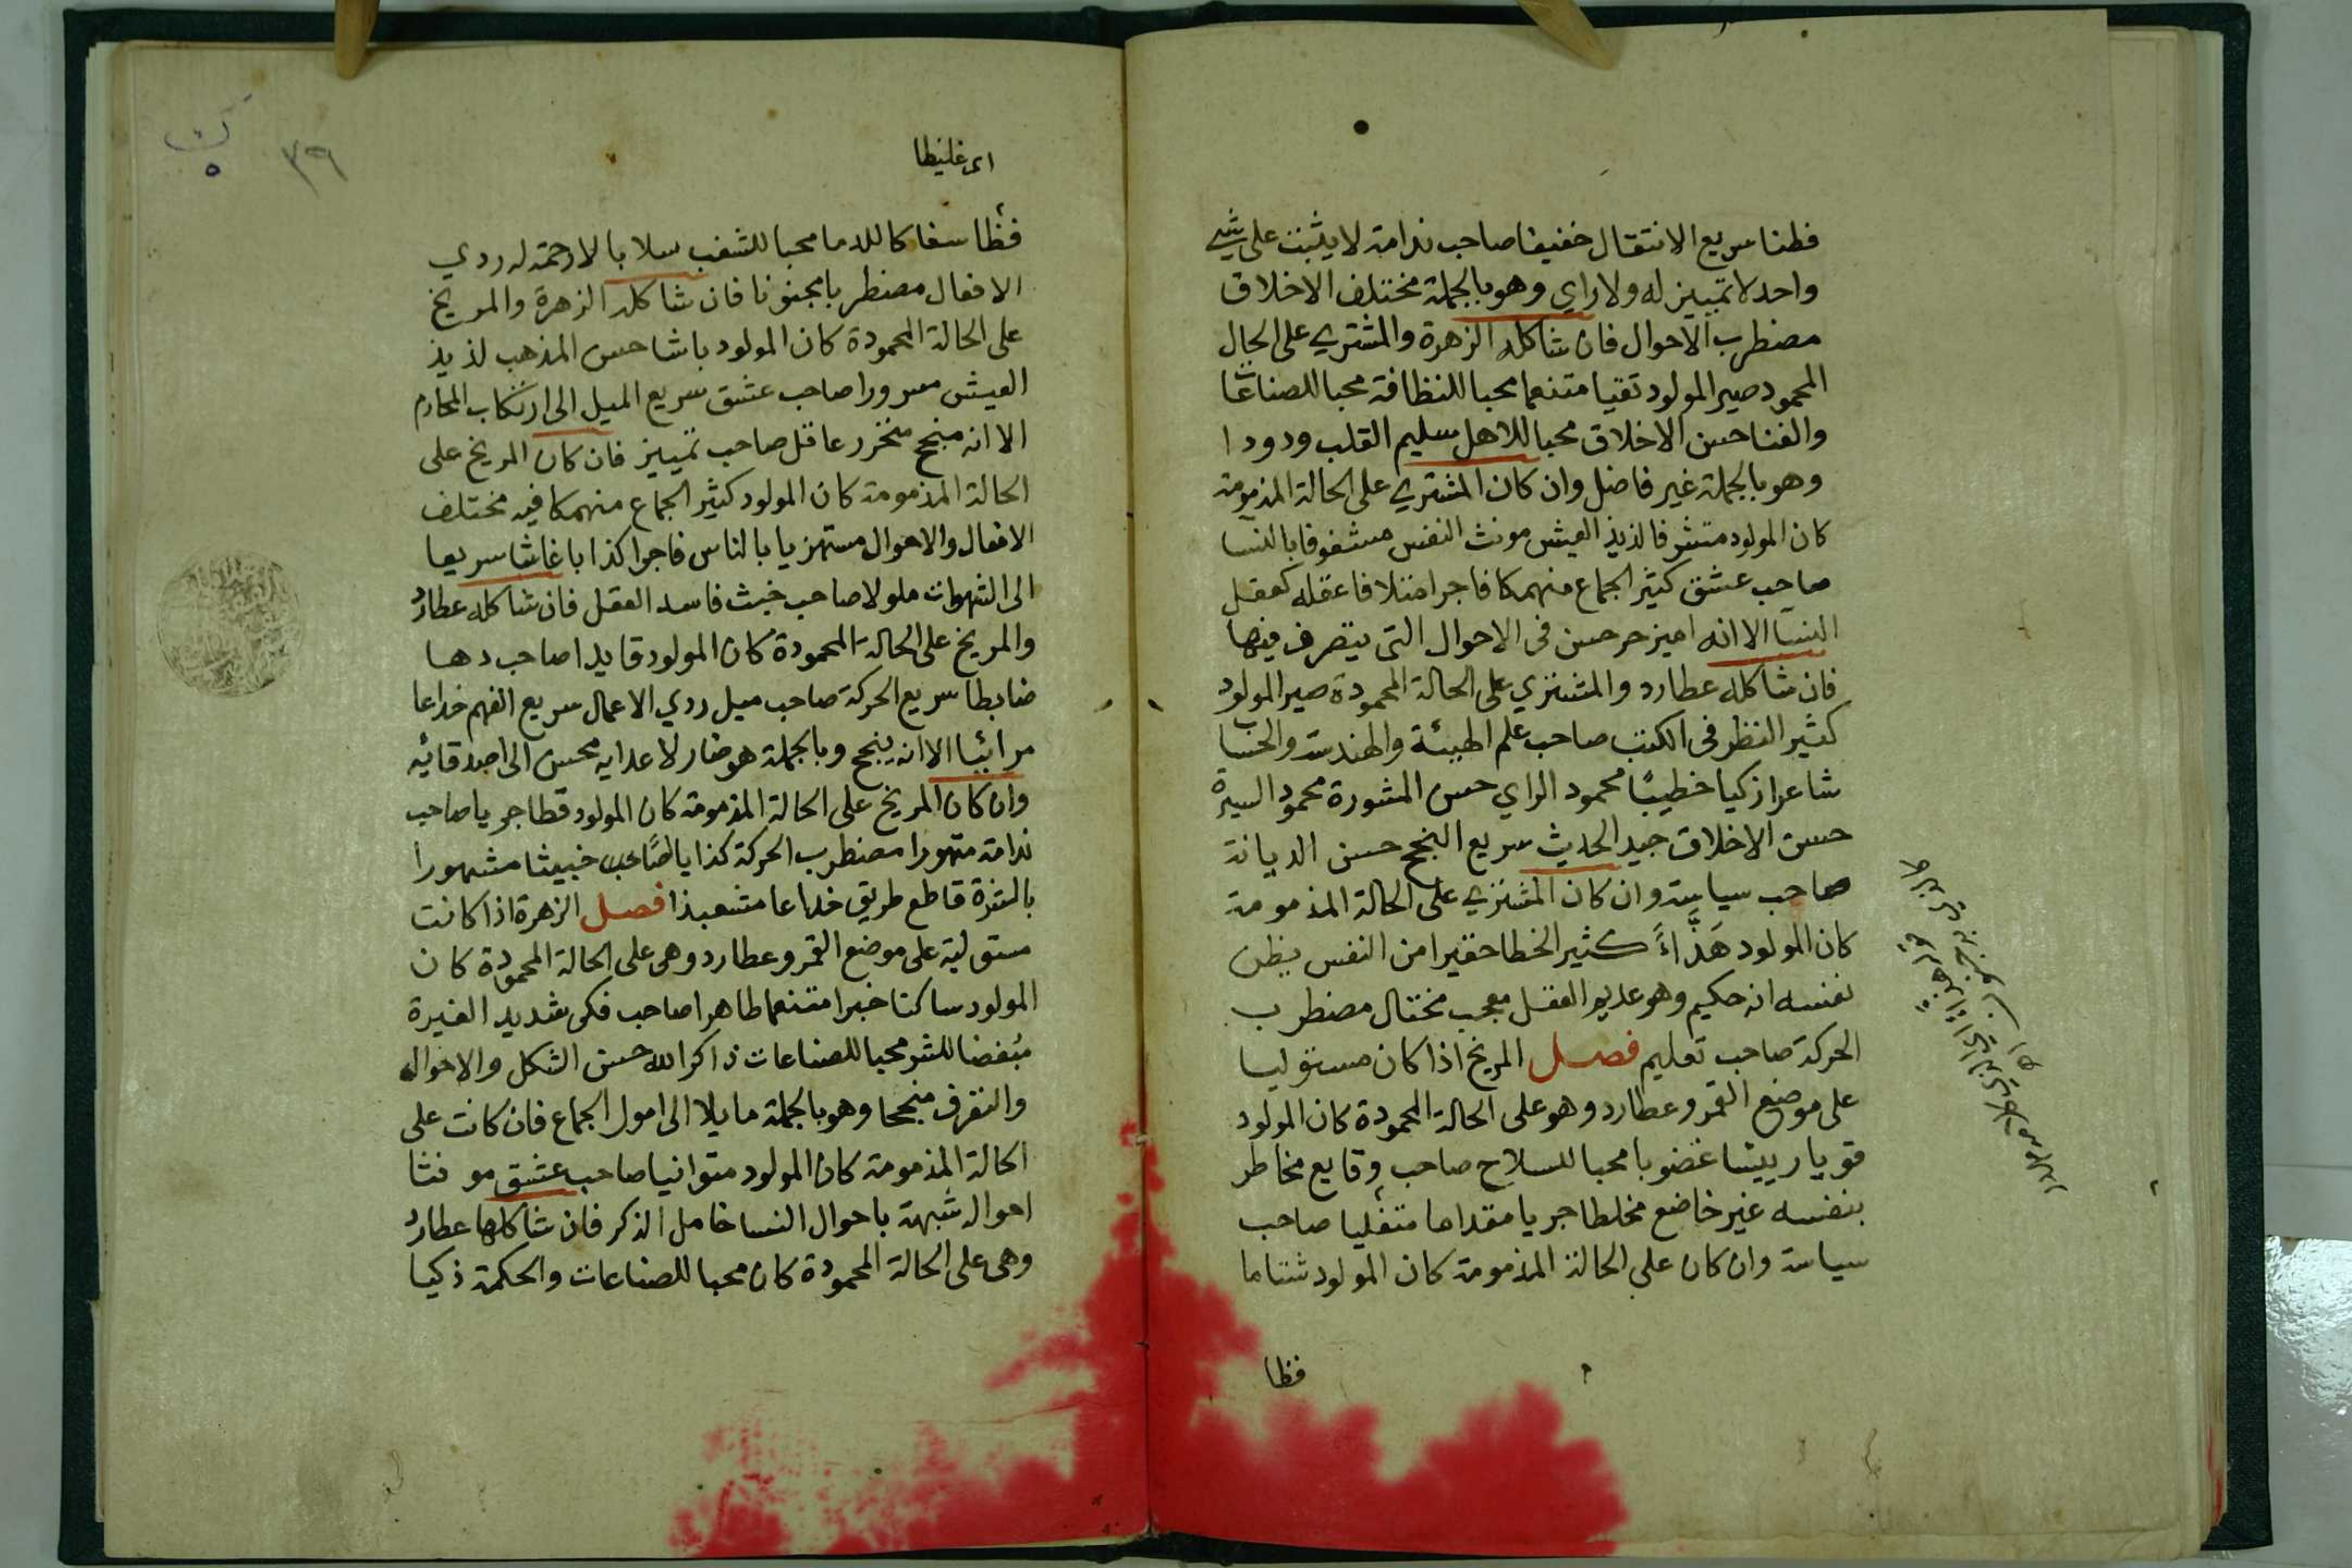 فطنا سريع الانتقال خفيفا صاحب ندامة لا يثبت على شي
واحد لا تمييز له ولا راي وهو بالجملة مختلف الاخلاق
مضطرب الاحوال فان شاكله الزهرة والمشتري على الحال
المحمود صير المولود تقيا متنعما محبا للنظافة محبا للصناعات
والغنا حسن الاخلاق محبا للاهل سليم القلب ودودا
وهو بالجملة غير فاضل وان كان المشتري على الحالة المذمومة
كان المولود متشرفا لذيذ العيش مونث النفس مشغوفا بالنسا
صاحب عشق كثير الجماع منهمكا فاجرا متلافا عقله كعقل
النسا الا انه امين حر حسن فى الاحوال التى يتصرف فيها
فان شاكله عطارد والمشتري على الحالة المحمودة صير المولود
كثير النظر فى الكتب صاحب علم الهيئة والهندسة والحساب
شاعرا زكيا خطيبًا محمود الراي حسن المشورة محمود السيرة
حسن الاخلاق جيد الحديث سريع النجح حسن الديانة
صاحب سياسة وان كان المشتري على الحالة المذمومة
كان المولود هَذَّاءً كثير الخطا حقيرا من النفس يظن
بنفسه انه حكيم وهو عديم العقل معجب مختال مضطرب
الحركة صاحب تعليم فصل المريخ اذا كان مستوليا
على موضع القمر وعطارد وهو على الحالة المحمودة كان المولود
قويا رييسا غضوبا محبا للسلاح صاحب وقايع مخاطر
بنفسه غير خاضع مخلطا جريا مقداما متفليا صاحب
سياسة وان كان على الحالة المذمومة كان المولود شتاما
فظا
٣٩
اى غليظا
فظا سفاكا للدما محبا للشغب سلابا لا رحمة له ردي
الافعال مضطربا مجنونا فان شاكله الزهرة والمريخ
على الحالة المحمودة كان المولود باشا حسن المذهب لذيذ
العيش مسرورا صاحب عشق سريع الميل الى ارتكاب المحارم
الا انه منجح متحرر عاقل صاحب تمييز فان كان المريخ على
الحالة المذمومة كان المولود كثير الجماع منهمكا فيه مختلف
الافعال والاحوال مستهزيا بالناس فاجرا كذابا غاشا سريعا
الى الشهوات ملولا صاحب خبث فاسد العقل فان شاكله عطارد
والمريخ على الحالة المحمودة كان المولود قايدا صاحب دها
ضابطا سريع الحركة صاحب ميل ردي الاعمال سريع الفهم خداعا
مرائيا الا انه ينجح وبالجملة هو ضار لاعدايه محسن الى اصدقائه
وان كان المريخ على الحالة المذمومة كان المولود قطا جريا صاحب
ندامة متهورا مضطرب الحركة كذابا صاحب خبيثا مشهورا
بالشرة قاطع طريق خداعا متشعبذا فصل الزهرة اذا كانت
مستولية على موضع القمر وعطارد وهى على الحالة المحمودة كان
المولود ساكنا خبرا متنعما طاهرا صاحب فكر شديد الغيرة
مُبغضا للشر محبا للصناعات ذاكرا لله حسن الشكل والاحوال
والتصرف منجحا وهو بالجملة مايلا الى امور الجماع فان كانت على
الحالة المذمومة كان المولود متوانيا صاحب عشق مونثا
احواله شبيهة باحوال النسا خامل الذكر فان شاكلها عطارد
وهى على الحالة المحمودة كان محبا للصناعات والحكمة ذكيا